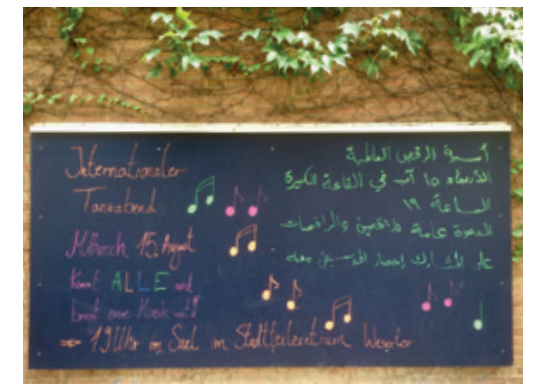 Internationaler
Tanzabend
Mittwoch 15. August
Kommt ALLE und
bringt eure Musik mit!
⇒ 19 Uhr im Saal im Stadtteilzentrum Wesertor
أمسية الرقص العالمية
الأربعاء ١٥ آب في القاعة الكبيرة
الساعة ١٩
الدعوة عامة للراقصين والراقصات
إحضار معه